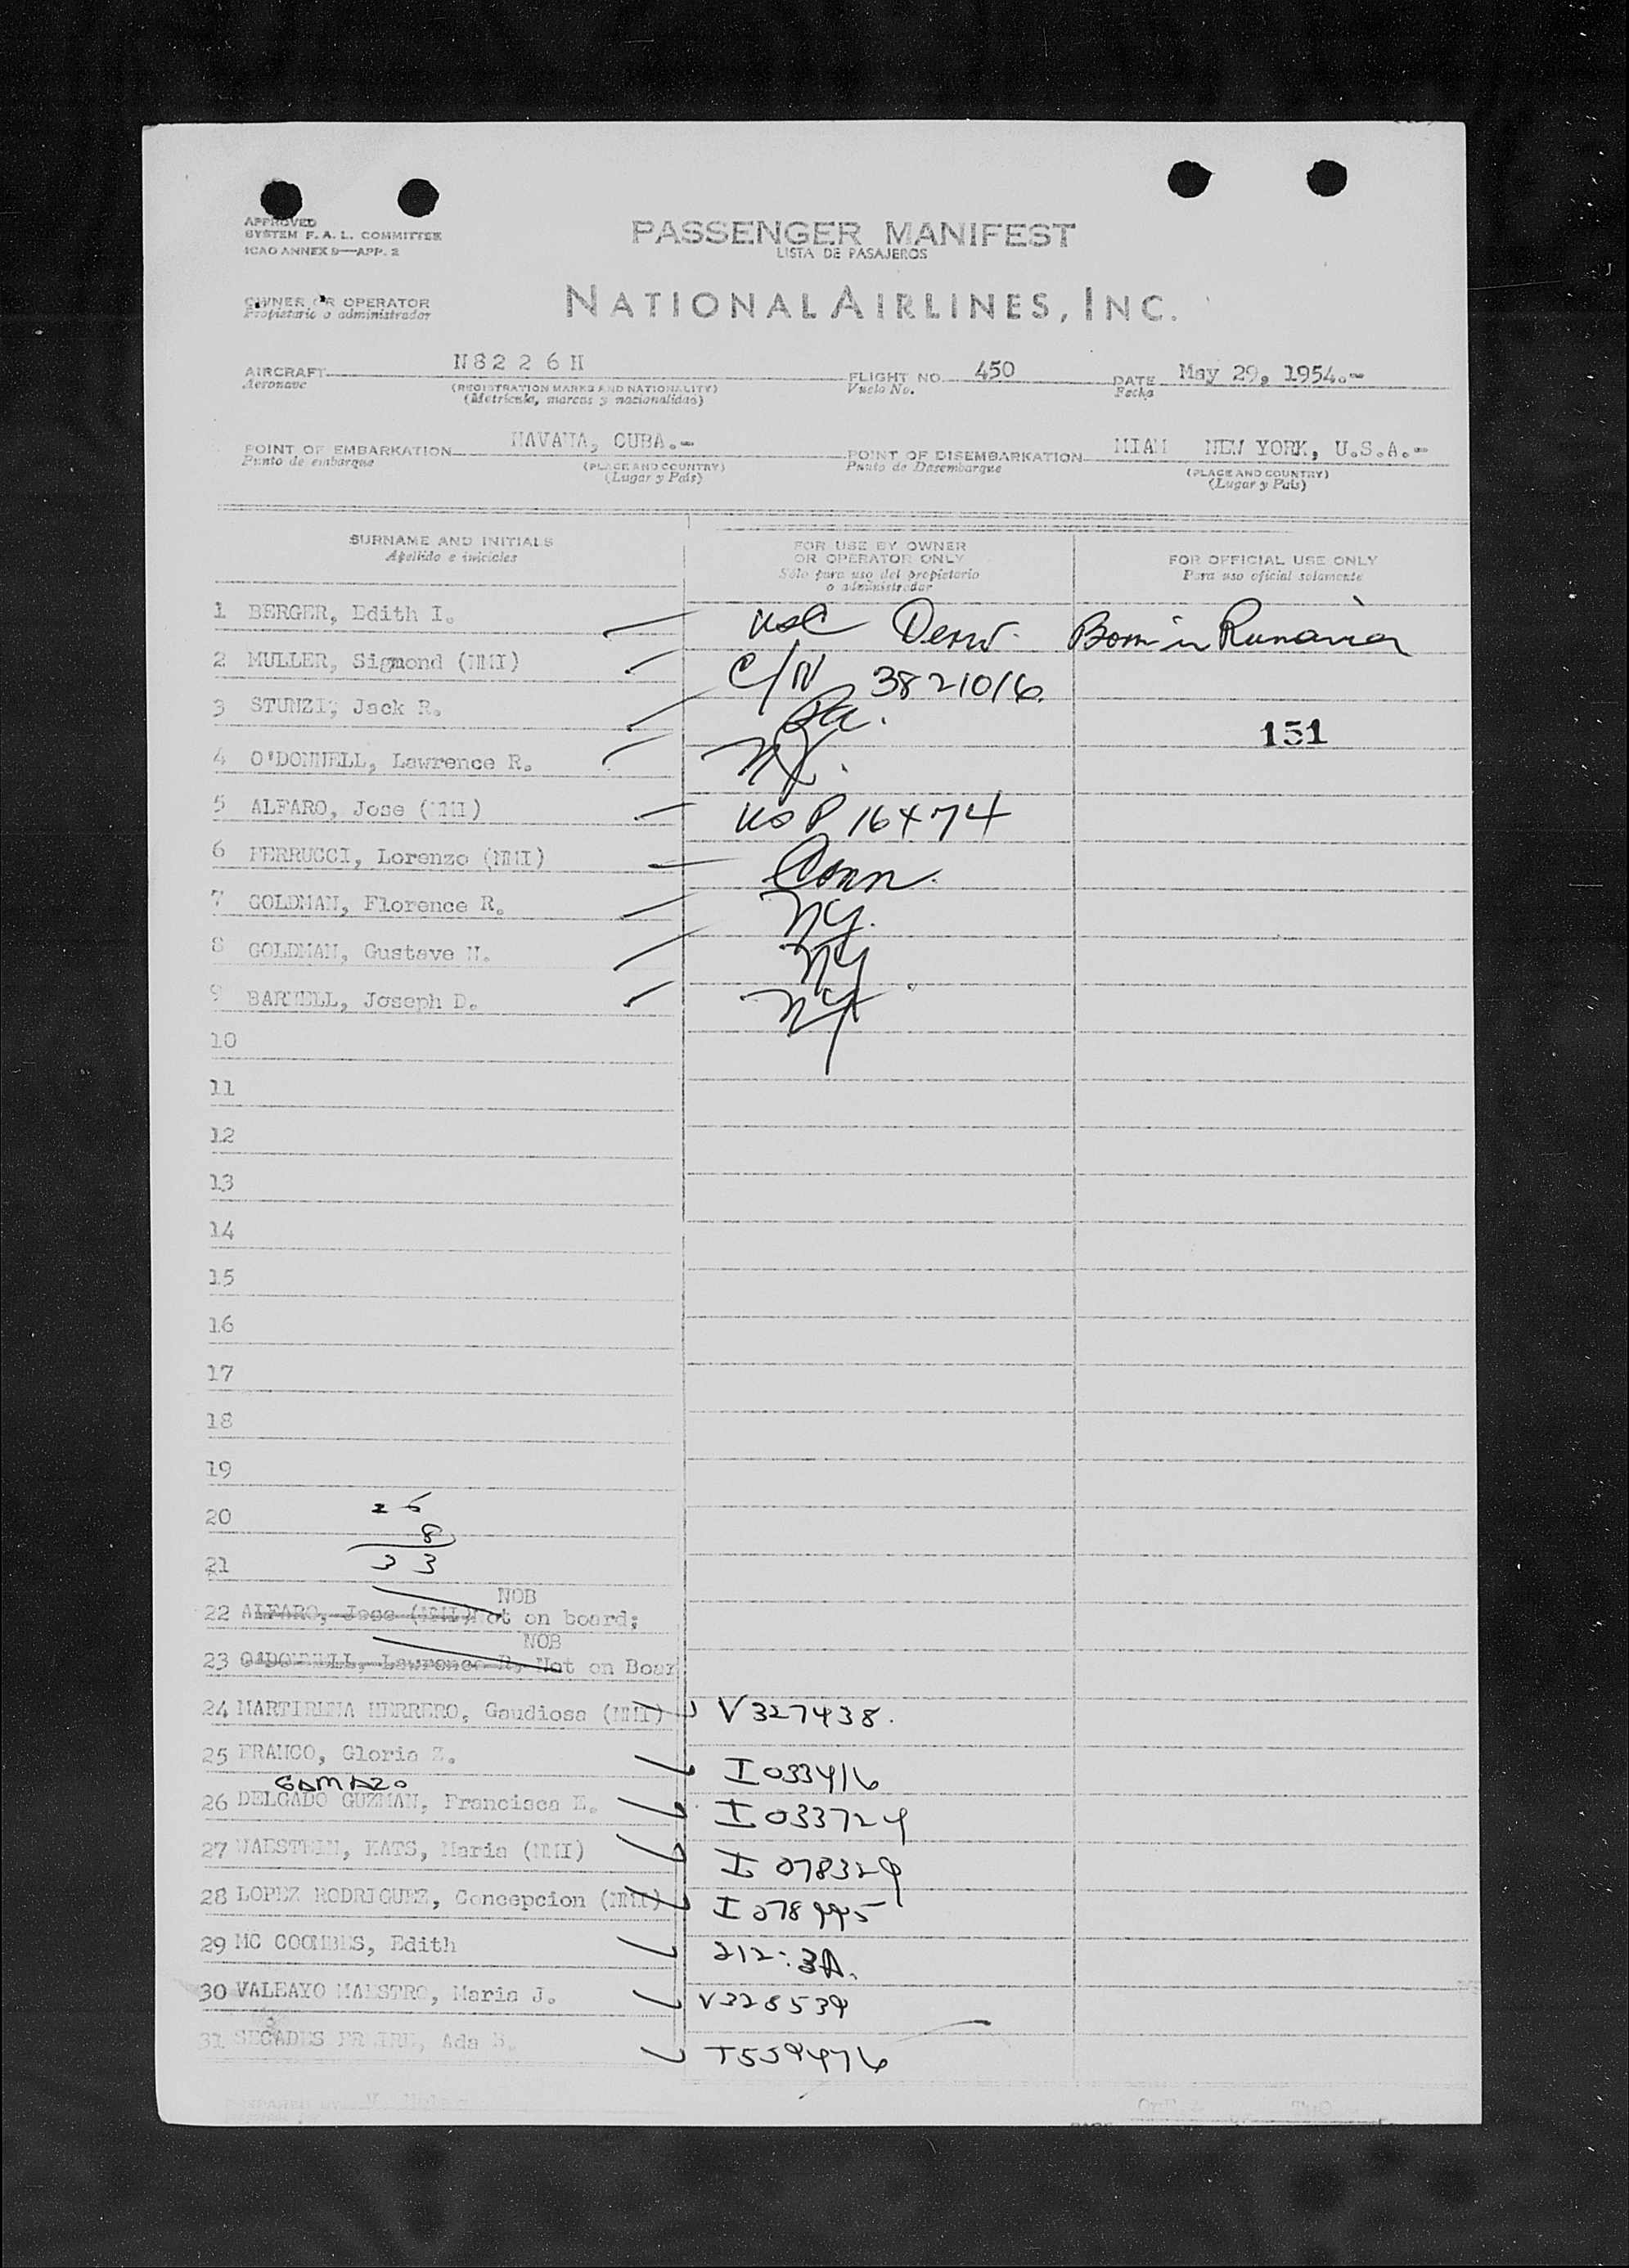 APPROVED
SYSTEM F. A. L. COMMITTEE
ICAO ANNEX 9—APP. 2
PASSENGER MANIFEST
LISTA DE PASAJEROS
OWNER OR OPERATOR
Propietario o administrador
NATIONAL AIRLINES, INC.
AIRCRAFT N8226H FLIGHT NO. 450 DATE May 29, 1954.-
Aeronave (REGISTRATION MARKS AND NATIONALITY) Vuelo No. Fecha
(Metricula, marcas y nacionalidad)
POINT OF EMBARKATION HAVANA, CUBA.- POINT OF DISEMBARKATION MIAM NEW YORK, U.S.A.-
Punto de embarque (PLACE AND COUNTRY) Punto de Desembarque (PLACE AND COUNTRY)
(Lugar y País) (Lugar y País)
SURNAME AND INITIALS
Apellido e iniciales
FOR USE BY OWNER
OR OPERATOR ONLY
Sólo para uso del propietario
o administrador
FOR OFFICIAL USE ONLY
Para uso oficial solamente
1 BERGER, Edith I. USC Born in Rumania
2 MULLER, Sigmond (NMI) C/N 3821016
3 STUNZI, Jack R. Pa.
151
4 O'DONNELL, Lawrence R. NY.
5 ALFARO, Jose (NMI) USP 16474
6 FERRUCCI, Lorenzo (NMI) Conn.
7 GOLDMAN, Florence R. NY.
8 GOLDMAN, Gustave H. NY
9 BARTELL, Joseph D. NY
10
11
12
13
14
15
16
17
18
19
20 26
8
21 33
NOB
22 ALFARO, Jose (NMI) Not on board;
NOB
23 O'DONNELL, Lawrence R, Not on Boar
24 MARTIRENA HERRERO, Gaudiosa (NMI) V327438.
25 FRANCO, Gloria Z. I033416
GAMAZO
26 DELGADO GUZMAN, Francisca E. I033724
27 WAESTEIN, KATS, Maria (NMI) I078329
28 LOPEZ RODRIGUEZ, Concepcion (NMI) I078995
29 MC COOMBES, Edith 212:3A.
30 VALBAYO MAESTRO, Maria J. V328539
31 SEGADES FREIRE, Ada T559476
PREPARED BY